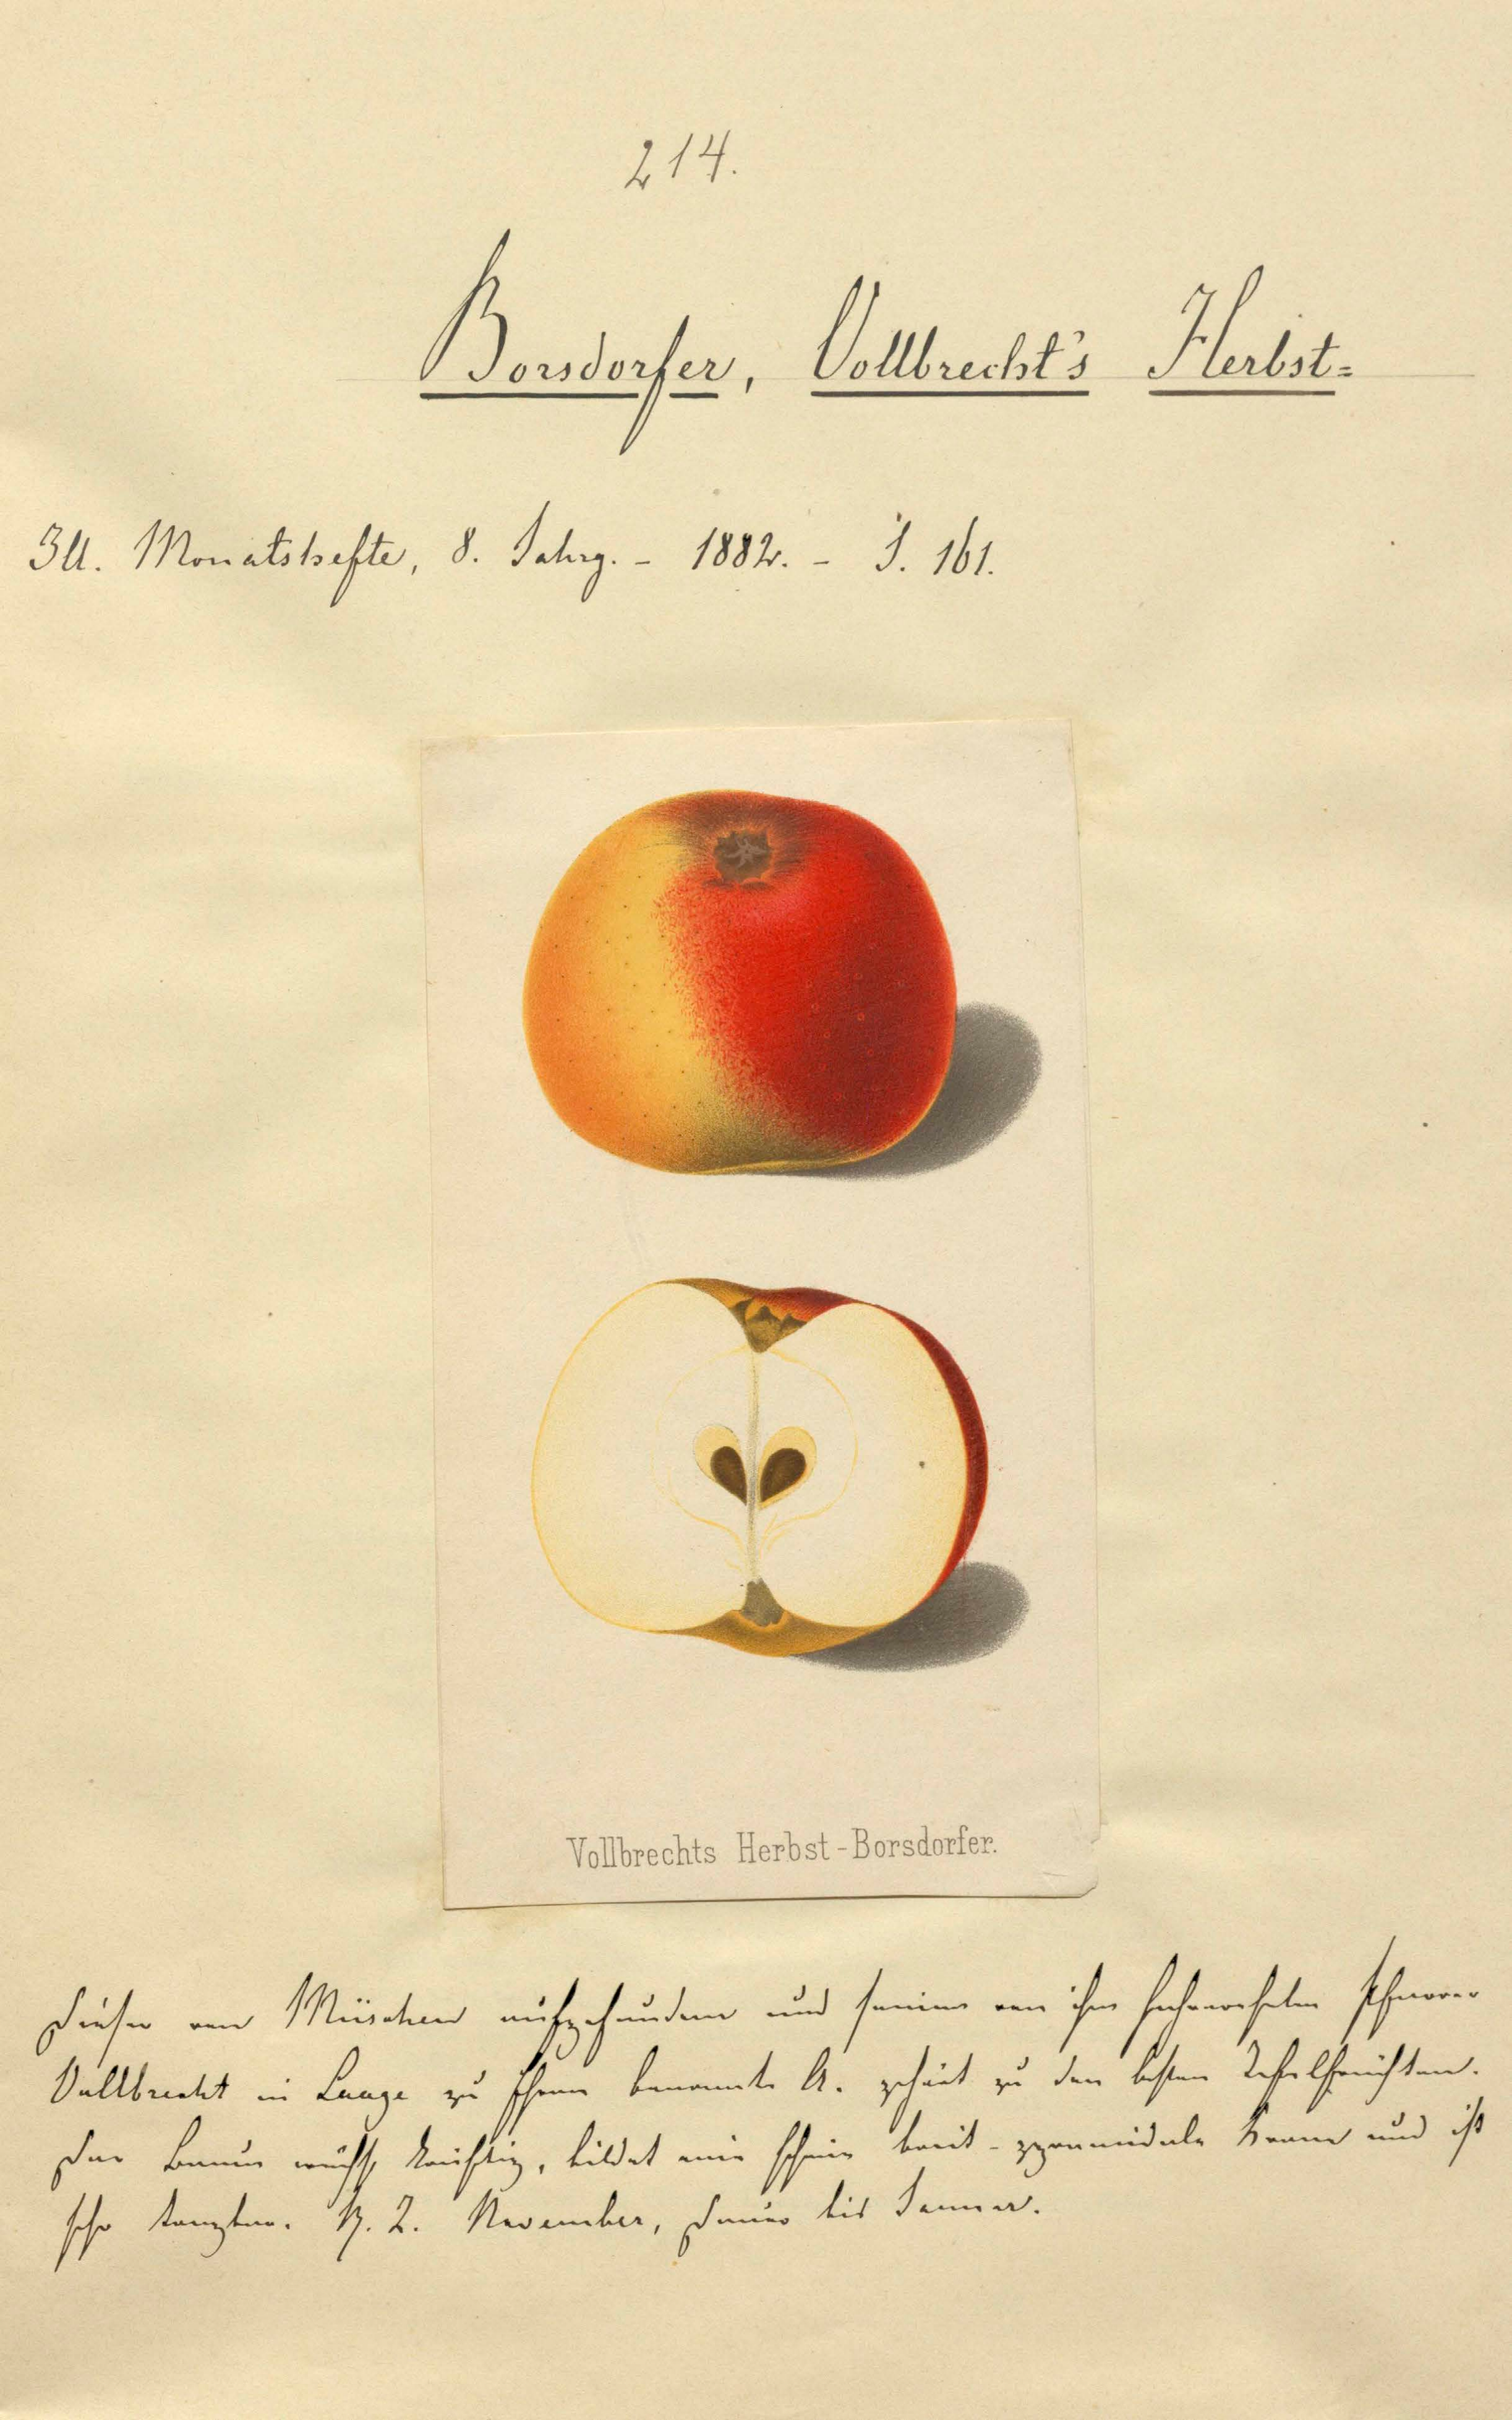 214.
Borsdorfer, Vollbrecht's Herbst=
Ill. Monatshefte, 8. Jahrg. - 1882. - S. 161.
Vollbrechts Herbst-Borsdorfer.
Dieser von Müschen aufgefundene und seinem von ihm hochverehrten Schwager
Vollbrecht in Laage zu Ehren benannte A. gehört zu den besten Tafelfrüchten.
Der Baum wächst kräftig, bildet eine schöne breit-pyramidale Krone und ist
sehr tragbar. R. Z. November, Dauer bis Januar.